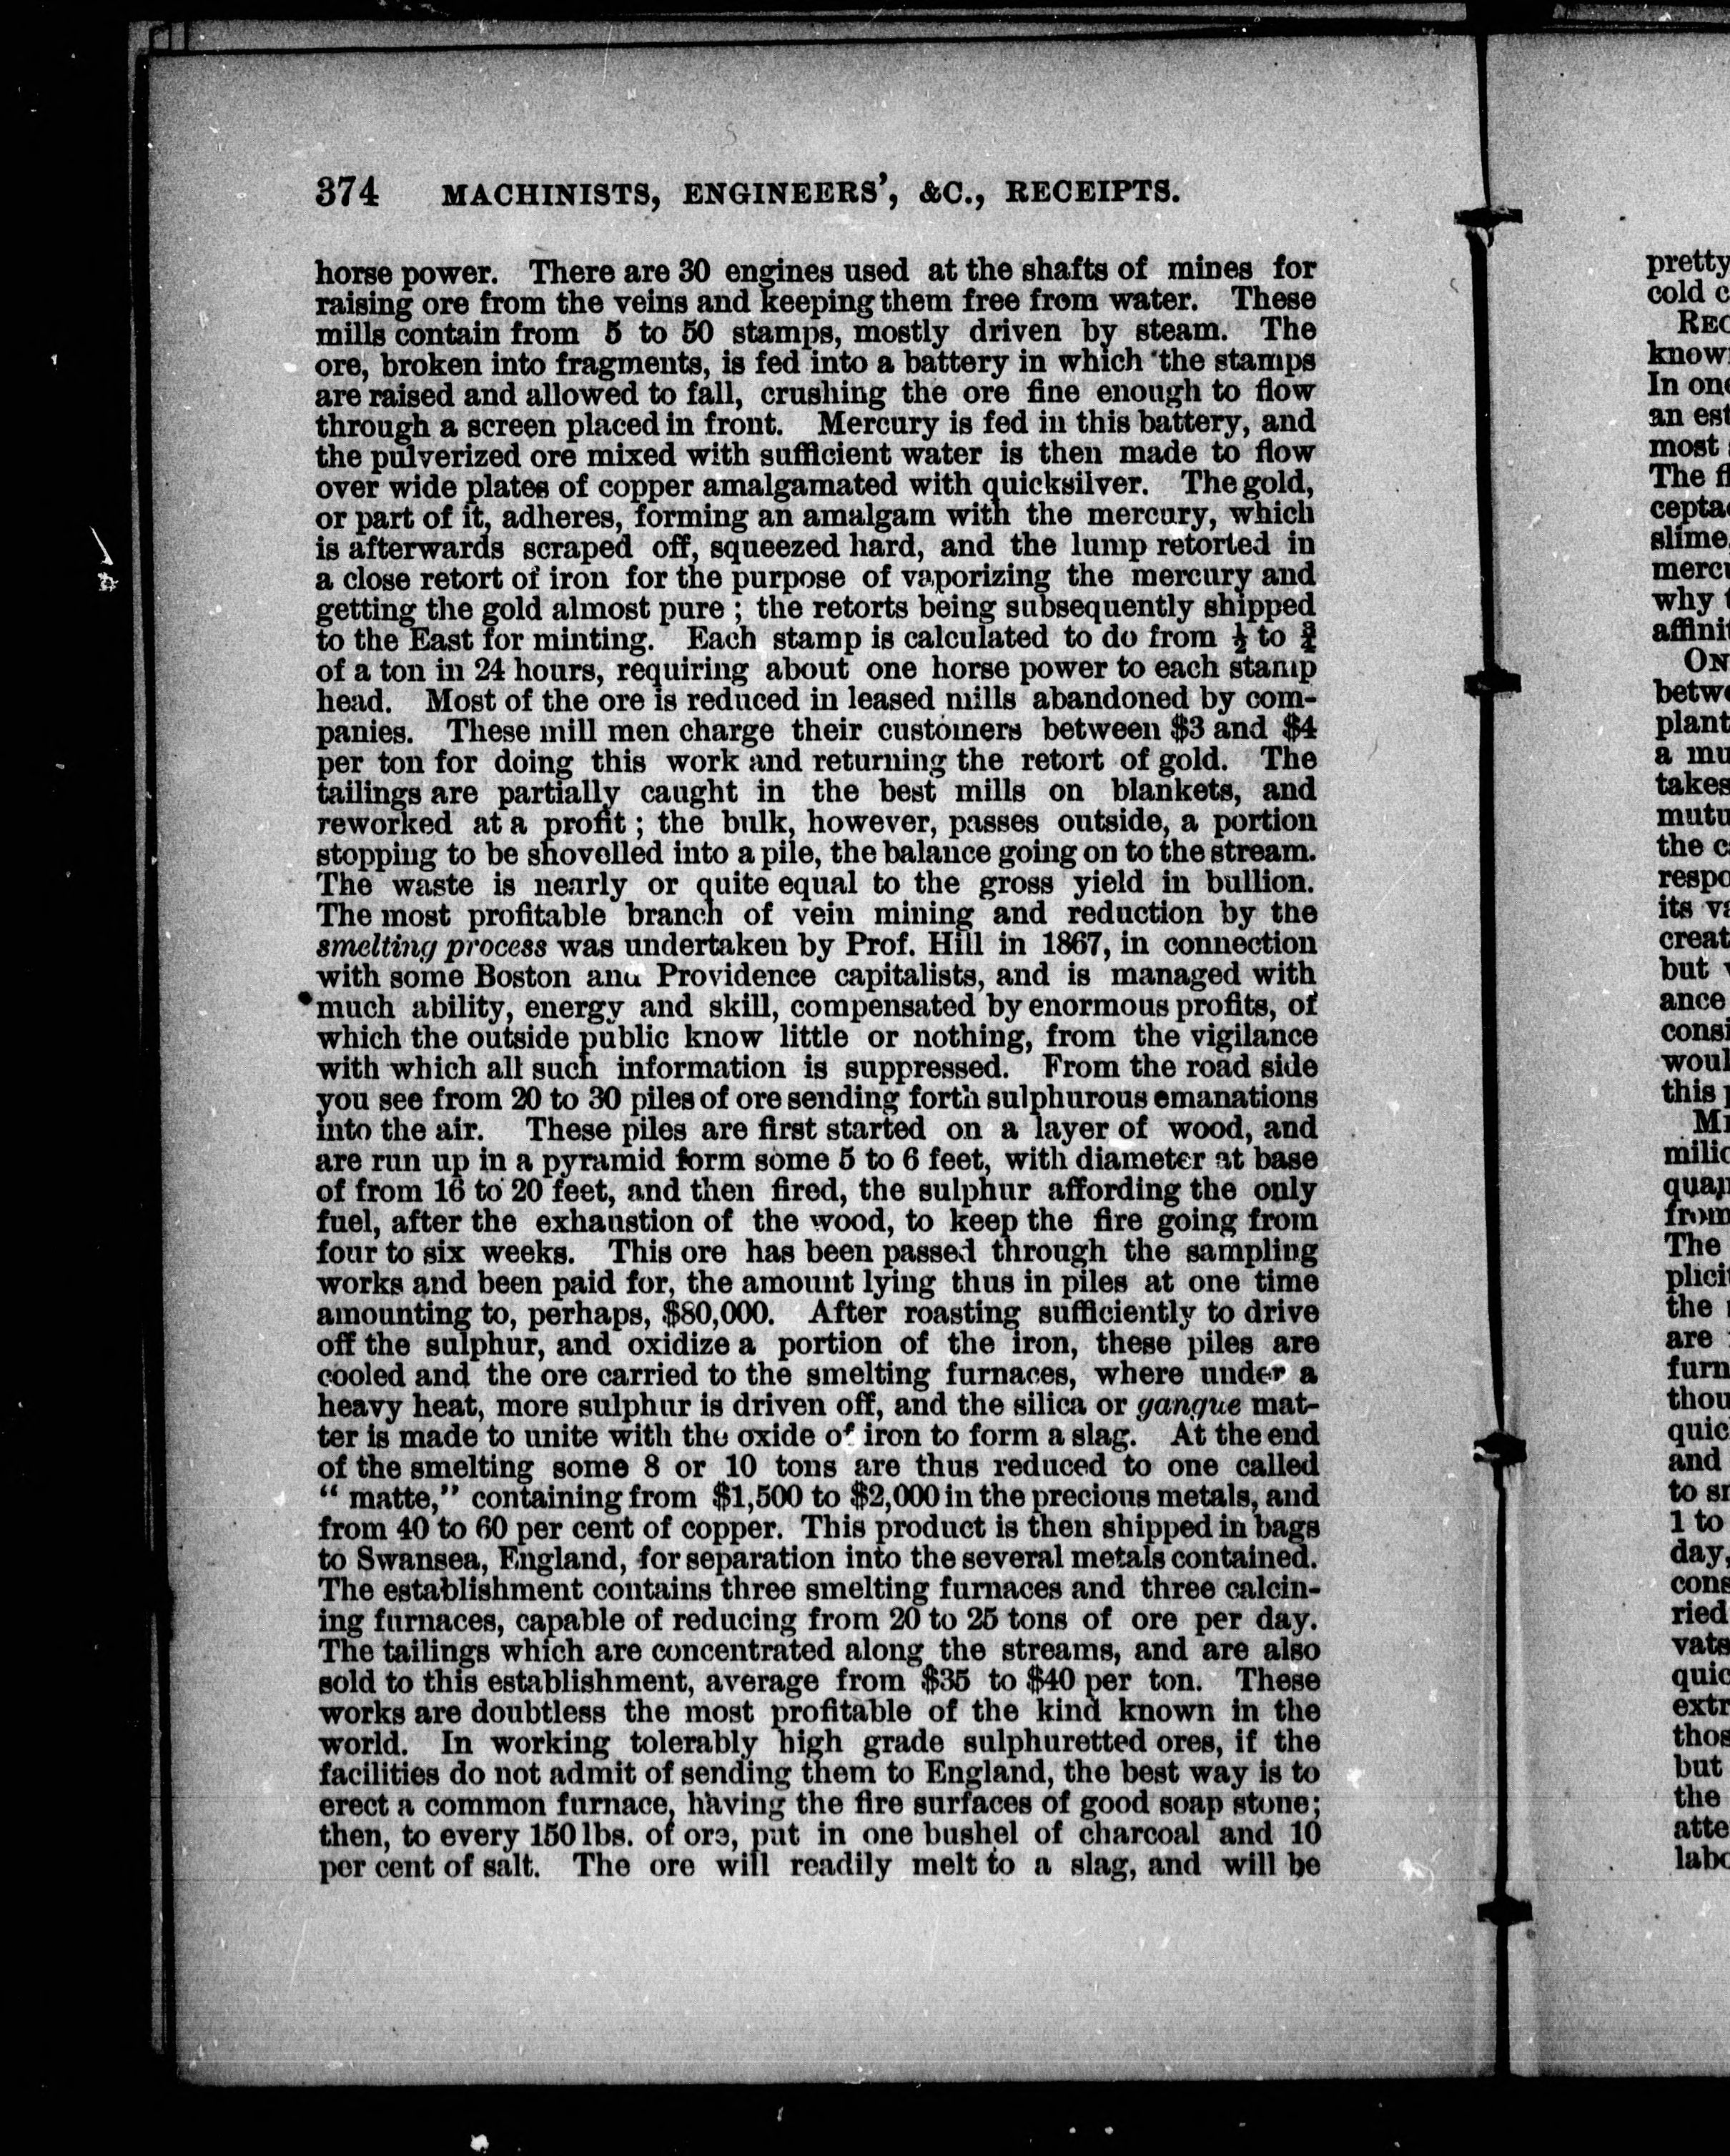 374 MACHINISTS, ENGINEERS', &C., RECEIPTS.
horse power. There are 30 engines used at the shafts of mines for
raising ore from the veins and keeping them free from water. These
mills contain from 5 to 50 stamps, mostly driven by steam. The
ore, broken into fragments, is fed into a battery in which the stamps
are raised and allowed to fall, crushing the ore fine enough to flow
through a screen placed in front. Mercury is fed in this battery, and
the pulverized ore mixed with sufficient water is then made to flow
over wide plates of copper amalgamated with quicksilver. The gold,
or part of it, adheres, forming an amalgam with the mercury, which
is afterwards scraped off, squeezed hard, and the lump retorted in
a close retort of iron for the purpose of vaporizing the mercury and
getting the gold almost pure ; the retorts being subsequently shipped
to the East for minting. Each stamp is calculated to do from ½ to ¾
of a ton in 24 hours, requiring about one horse power to each stamp
head. Most of the ore is reduced in leased mills abandoned by com-
panies. These mill men charge their customers between $3 and $4
per ton for doing this work and returning the retort of gold. The
tailings are partially caught in the best mills on blankets, and
reworked at a profit ; the bulk, however, passes outside, a portion
stopping to be shovelled into a pile, the balance going on to the stream.
The waste is nearly or quite equal to the gross yield in bullion.
The most profitable branch of vein mining and reduction by the
smelting process was undertaken by Prof. Hill in 1867, in connection
with some Boston and Providence capitalists, and is managed with
much ability, energy and skill, compensated by enormous profits, of
which the outside public know little or nothing, from the vigilance
with which all such information is suppressed. From the road side
you see from 20 to 30 piles of ore sending forth sulphurous emanations
into the air. These piles are first started on a layer of wood, and
are run up in a pyramid form some 5 to 6 feet, with diameter at base
of from 16 to 20 feet, and then fired, the sulphur affording the only
fuel, after the exhaustion of the wood, to keep the fire going from
four to six weeks. This ore has been passed through the sampling
works and been paid for, the amount lying thus in piles at one time
amounting to, perhaps, $80,000. After roasting sufficiently to drive
off the sulphur, and oxidize a portion of the iron, these piles are
cooled and the ore carried to the smelting furnaces, where under a
heavy heat, more sulphur is driven off, and the silica or gangue mat-
ter is made to unite with the oxide of iron to form a slag. At the end
of the smelting some 8 or 10 tons are thus reduced to one called
" matte," containing from $1,500 to $2,000 in the precious metals, and
from 40 to 60 per cent of copper. This product is then shipped in bags
to Swansea, England, for separation into the several metals contained.
The establishment contains three smelting furnaces and three calcin-
ing furnaces, capable of reducing from 20 to 25 tons of ore per day.
The tailings which are concentrated along the streams, and are also
sold to this establishment, average from $35 to $40 per ton. These
works are doubtless the most profitable of the kind known in the
world. In working tolerably high grade sulphuretted ores, if the
facilities do not admit of sending them to England, the best way is to
erect a common furnace, having the fire surfaces of good soap stone;
then, to every 150 lbs. of ore, put in one bushel of charcoal and 10
per cent of salt. The ore will readily melt to a slag, and will be
pretty
cold
know
In one
an est
most
The
slime
why
betwe
plant
a mu
takes
mutu
the
respo
its
creat
but
ance
consi
woul
this
from
The
the
are
furn
thou
quic
and
to
1 to
day,
cons
ried
vats
quic
extr
thos
but
the
atte
labo